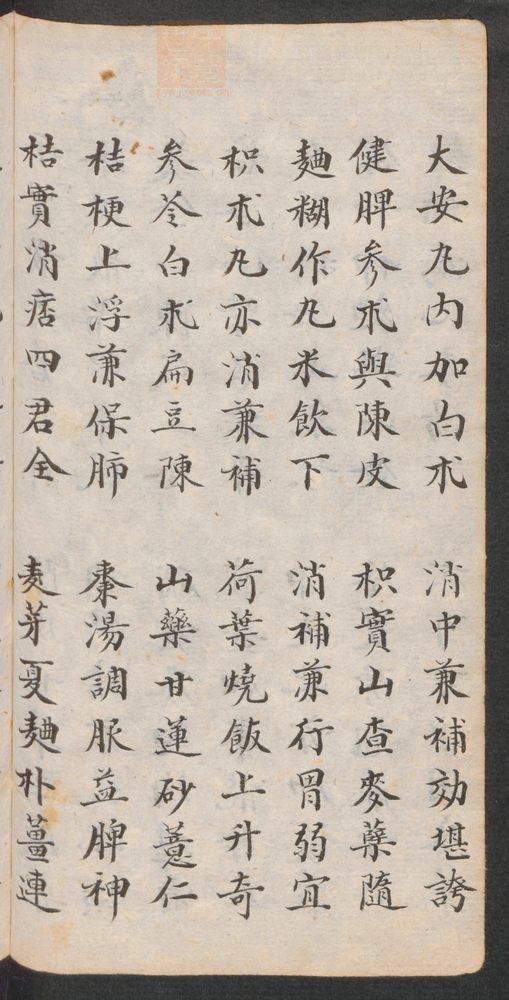 大安丸內加白朮　消中兼補効堪誇
健脾参朮與陳皮　枳實山查麥蘗隨
麯糊作丸米飲下　消補兼行胃弱宜
枳朮丸亦消兼補　荷葉燒飯上升奇
参苓白朮扁豆陳　山藥甘蓮砂薏仁
桔梗上浮兼保肺　棗湯調服益脾神
枯實消痞四君全　麦芽夏麯朴薑連